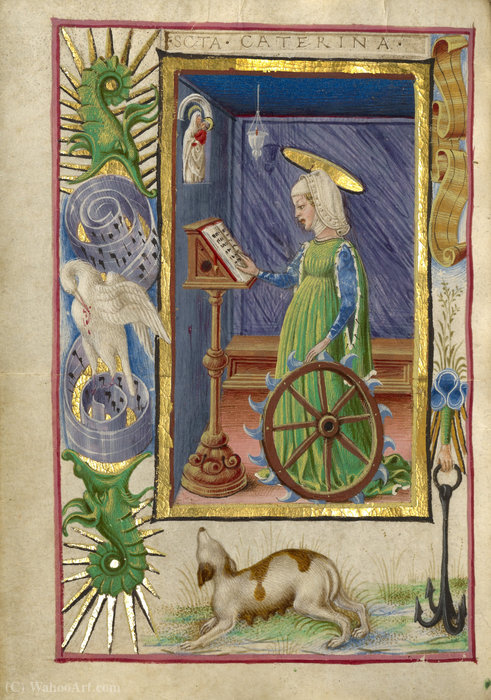 SCTA · CATERINA ·
(c) WahooArt.com